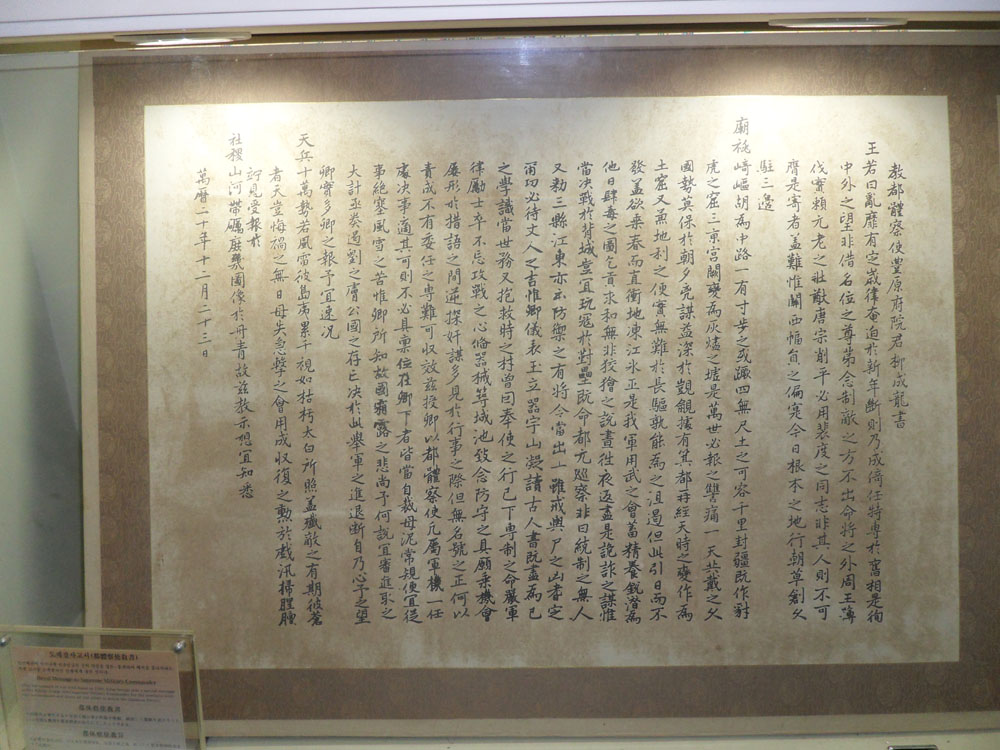 教都體察使豊原府院君柳成龍書
王若曰亂靡有定歲律奄迫於新年斷則乃成倚任特專於舊相是徇
中外之望非借名位之尊第念制敵之方不出命將之外周王薄
伐實賴元老之壯猷唐宗削平必用裴度之同志非其人則不可
膺是寄者盖難惟關西幅員之偏寔今日根本之地行朝草創久
駐三邊
廟貌崎嶇胡為中路一有寸步之或躓四無尺土之可容千里封疆旣作豺
虎之窟三京宮闕變為灰燼之墟是萬世必報之讐痛一天共戴之久
國勢莫保於朝夕兇謀益深於覬覦據有箕都再經天時之變作為
土窟又無地利之便實無難於長驅孰能為之沮遏但此引日而不
發盖欲乘春而直衝地凍江氷正是我軍用武之會蓄精養銳潛為
他日肆毒之圖乞貢求和無非狡獪之說晝徃夜返盡是詭詐之謀惟
當决戰於背城豈宜玩寇於對壘旣命都元廵察非曰統制之無人
又勑三縣江東亦云防禦之有將今當出 雖戒輿尸之凶 定
功必待丈人之吉惟卿儀表玉立器宇山凝讀古人書旣盡為己
之學識當世務又抱救時之才曾因奉使之行已下専制之命嚴軍
律勵士卒不忘攻戰之心備器械葺城池 念防守之具願乘機會
屢形於措語之間逆探奸謀多見於行事之際但無名號之正何以
責成不有委任之專難可收效玆授卿以都體察使凡屬軍機一任
處决事適其可則不必具稟位在卿下者皆當自裁毋泥常規便宜從
事絶塞風雪之苦惟卿所知故國霜露之悲尚予何說宜審進取之
大計丞奏遏劉之膚公國之存亡决於此擧軍之進退斷自乃心予之望
卿實多卿之報予宜速况
天兵十萬勢若風雷彼島夷累千視如枯朽太白所照盖殲敵之有期彼蒼
者天豈悔禍之無日毋失急擊之會用成収復之勲於戲汛掃腥膻
竚見受報於
社稷山河帶礪庶幾圖像於丹青故玆敎示想宜知悉
萬曆二十年十二月二十三日
도체찰사교서(都體察使敎書)
Royal Message to Supreme Military Commander